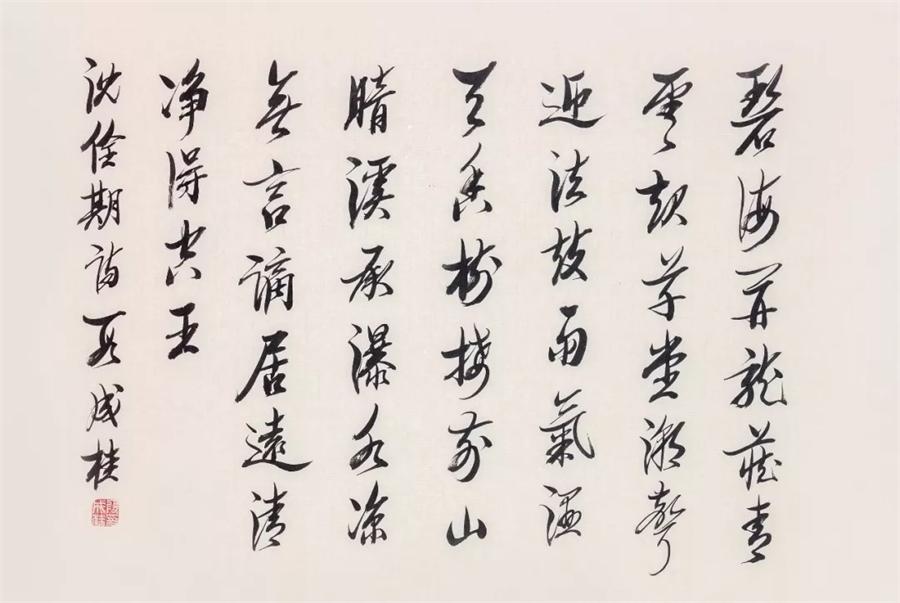 碧海開龍藏青
雲起草堂潮聲
迎法鼓雨氣溼
天香樹接前山
暗溪承瀑水凉
無言謫居遠清
净得空王
沈佺期詩 段成桂